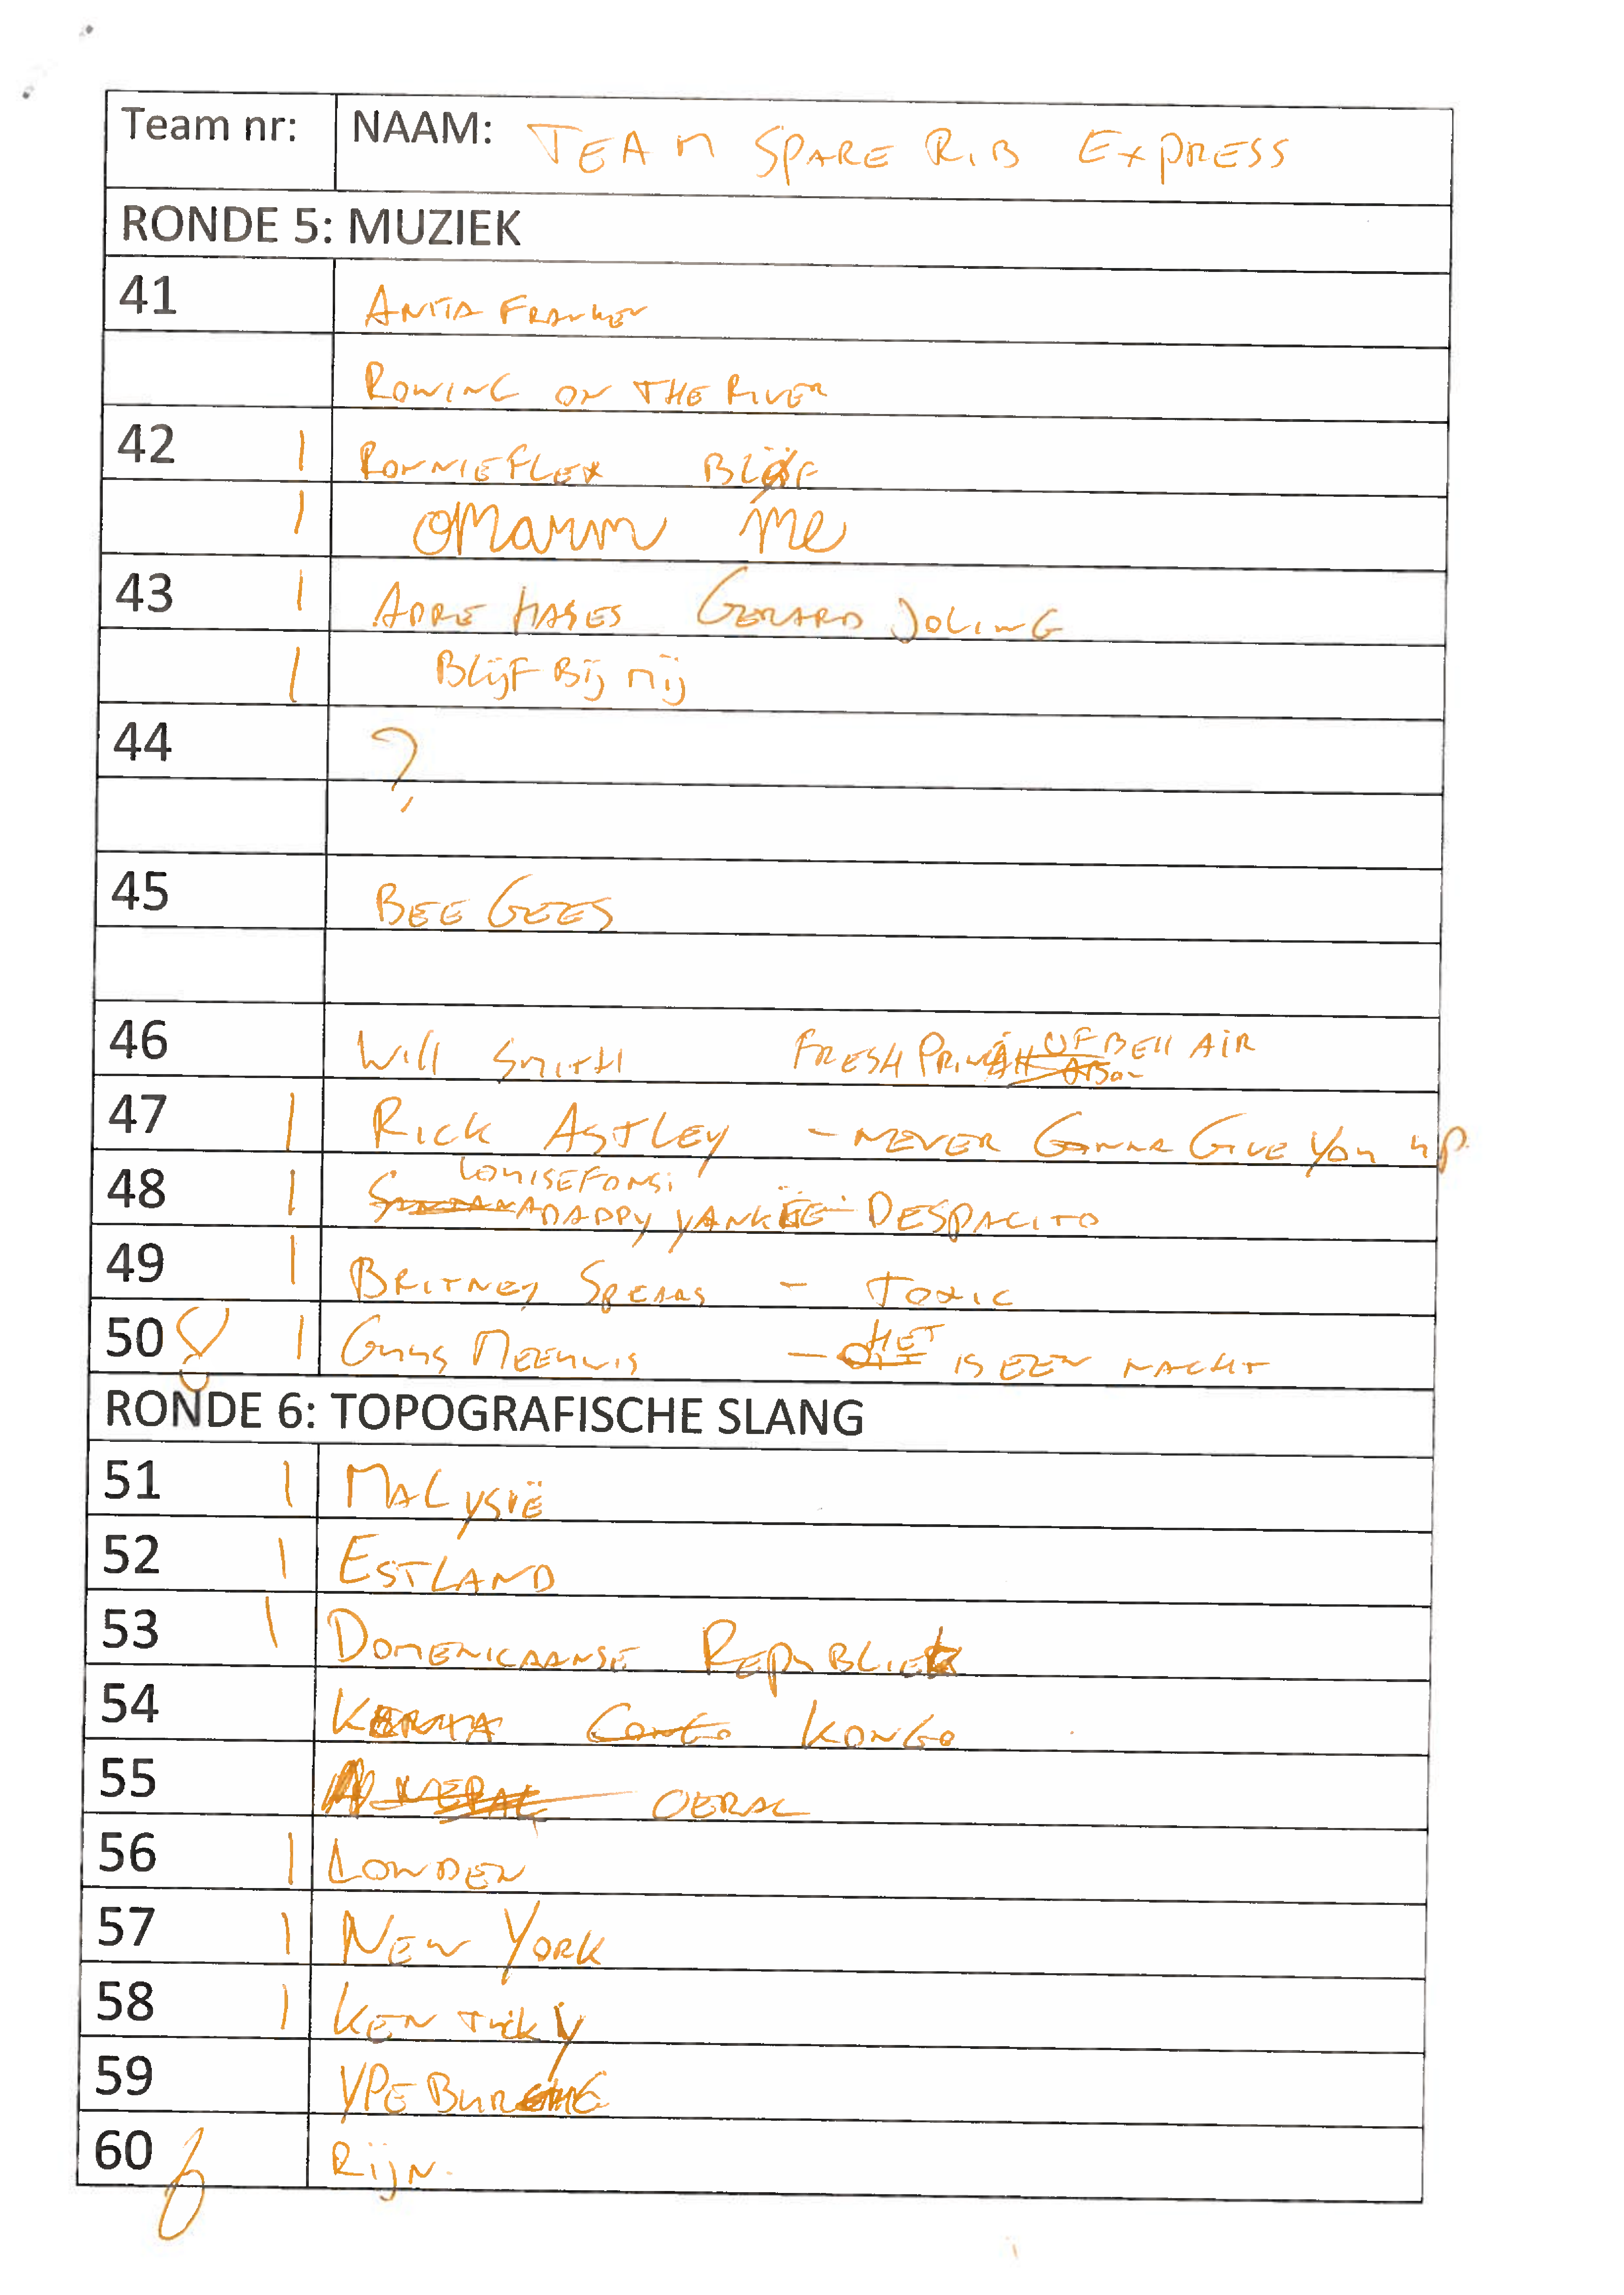 Team nr: NAAM: TEAM SPARE RIB EXPRESS
RONDE 5: MUZIEK
41 ANITA FRANKEN
ROWING ON THE RIVER
42 | RONNIE FLEX BLØF
| OMARM ME
43 | ADRE HASES GERARD JOLING
| BLIJF BIJ MIJ
44 ?
45 BEE GEES
46 WILL SMITH FRESH PRINS OF BELL AIR
47 | RICK ASTLEY - NEVER GONNA GIVE YOU UP
LOUISEFONSI
48 | DADDY YANKEE - DESPACITO
49 | BRITNEY SPEARS - TOXIC
50 8 | GUUS MEEUWIS - HET IS EEN NACHT
RONDE 6: TOPOGRAFISCHE SLANG
51 | MALYSIË
52 | ESTLAND
53 | DOMENICAANSE REPUBLIEK
54 KENIA CONGO KONGO
55 NEPAL OERAL
56 | LONDEN
57 | NEW YORK
58 | KENTUCKY
59 YPEBURG
60 6 RIJN.